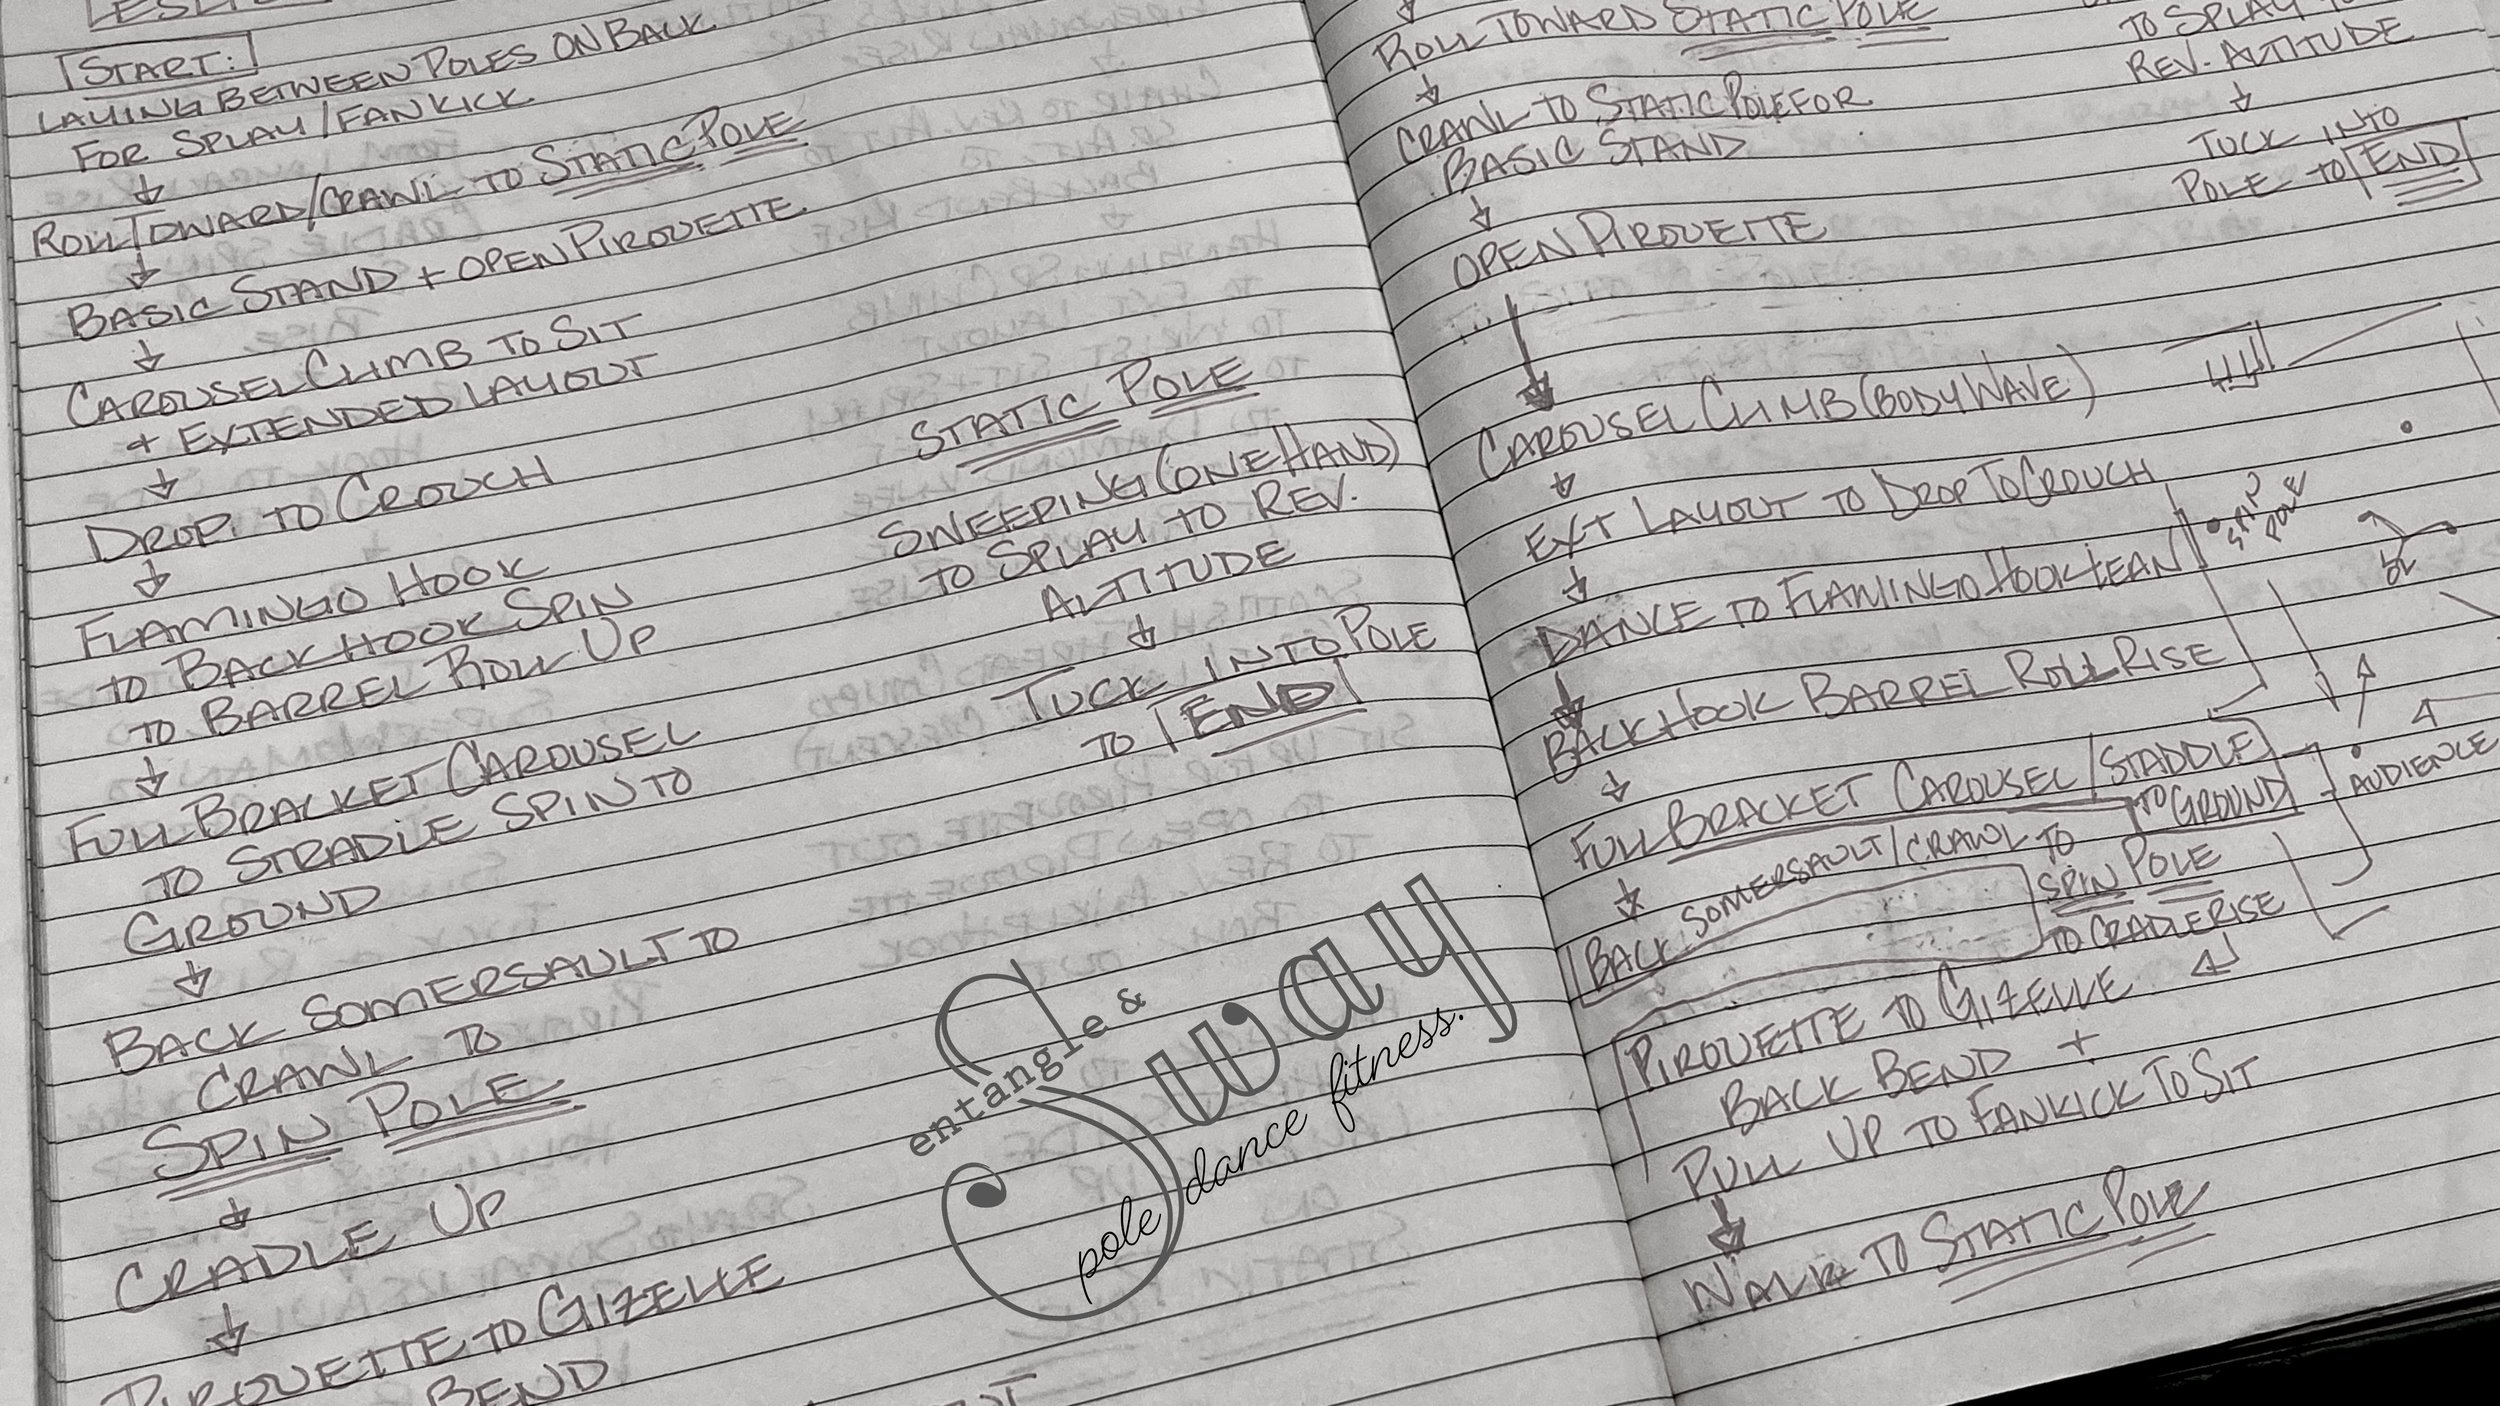 START:
LAYING BETWEEN POLES ON BACK
FOR SPLAY/FANKICK
ROLL TOWARD/CRAWL TO STATIC POLE
BASIC STAND + OPEN PIROUETTE
CAROUSEL CLIMB TO SIT
+ EXTENDED LAYOUT
DROP TO CROUCH
FLAMINGO HOOK
TO BACK HOOK SPIN
TO BARREL ROLL UP
FULL BRACKET CAROUSEL
TO STRADLE SPIN TO
GROUND
BACK SOMERSAULT TO
CRAWL TO
SPIN POLE
CRADLE UP
PIROUETTE TO GIZELLE
BEND
STATIC POLE
SWEEPING (ONE HAND)
TO SPLAY TO REV.
ALTITUDE
TUCK INTO POLE
TO END
entangle &
Sway
pole dance fitness.
ROLL TOWARD STATIC POLE
CRAWL TO STATIC POLE FOR
BASIC STAND
OPEN PIROUETTE
CAROUSEL CLIMB (BODY WAVE)
EXT LAYOUT TO DROP TO CROUCH
DANCE TO FLAMINGO HOOK LEAN
BACK HOOK BARREL ROLL RISE
FULL BRACKET CAROUSEL/STADDLE
TO GROUND
BACK SOMERSAULT/CRAWL TO
SPIN POLE
TO CRADLE RISE
PIROUETTE TO GIZELLE
BACK BEND +
PULL UP TO FANKICK TO SIT
WALK TO STATIC POLE
TO SPLAY TO
REV. ALTITUDE
TUCK INTO
POLE TO END
SPIN
POLE
AUDIENCE